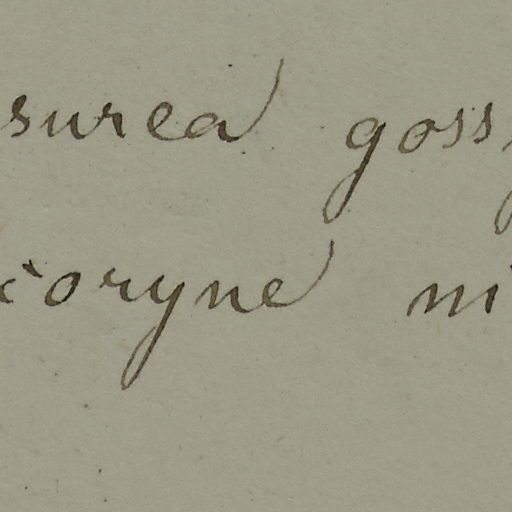 surea goss
coryne ni